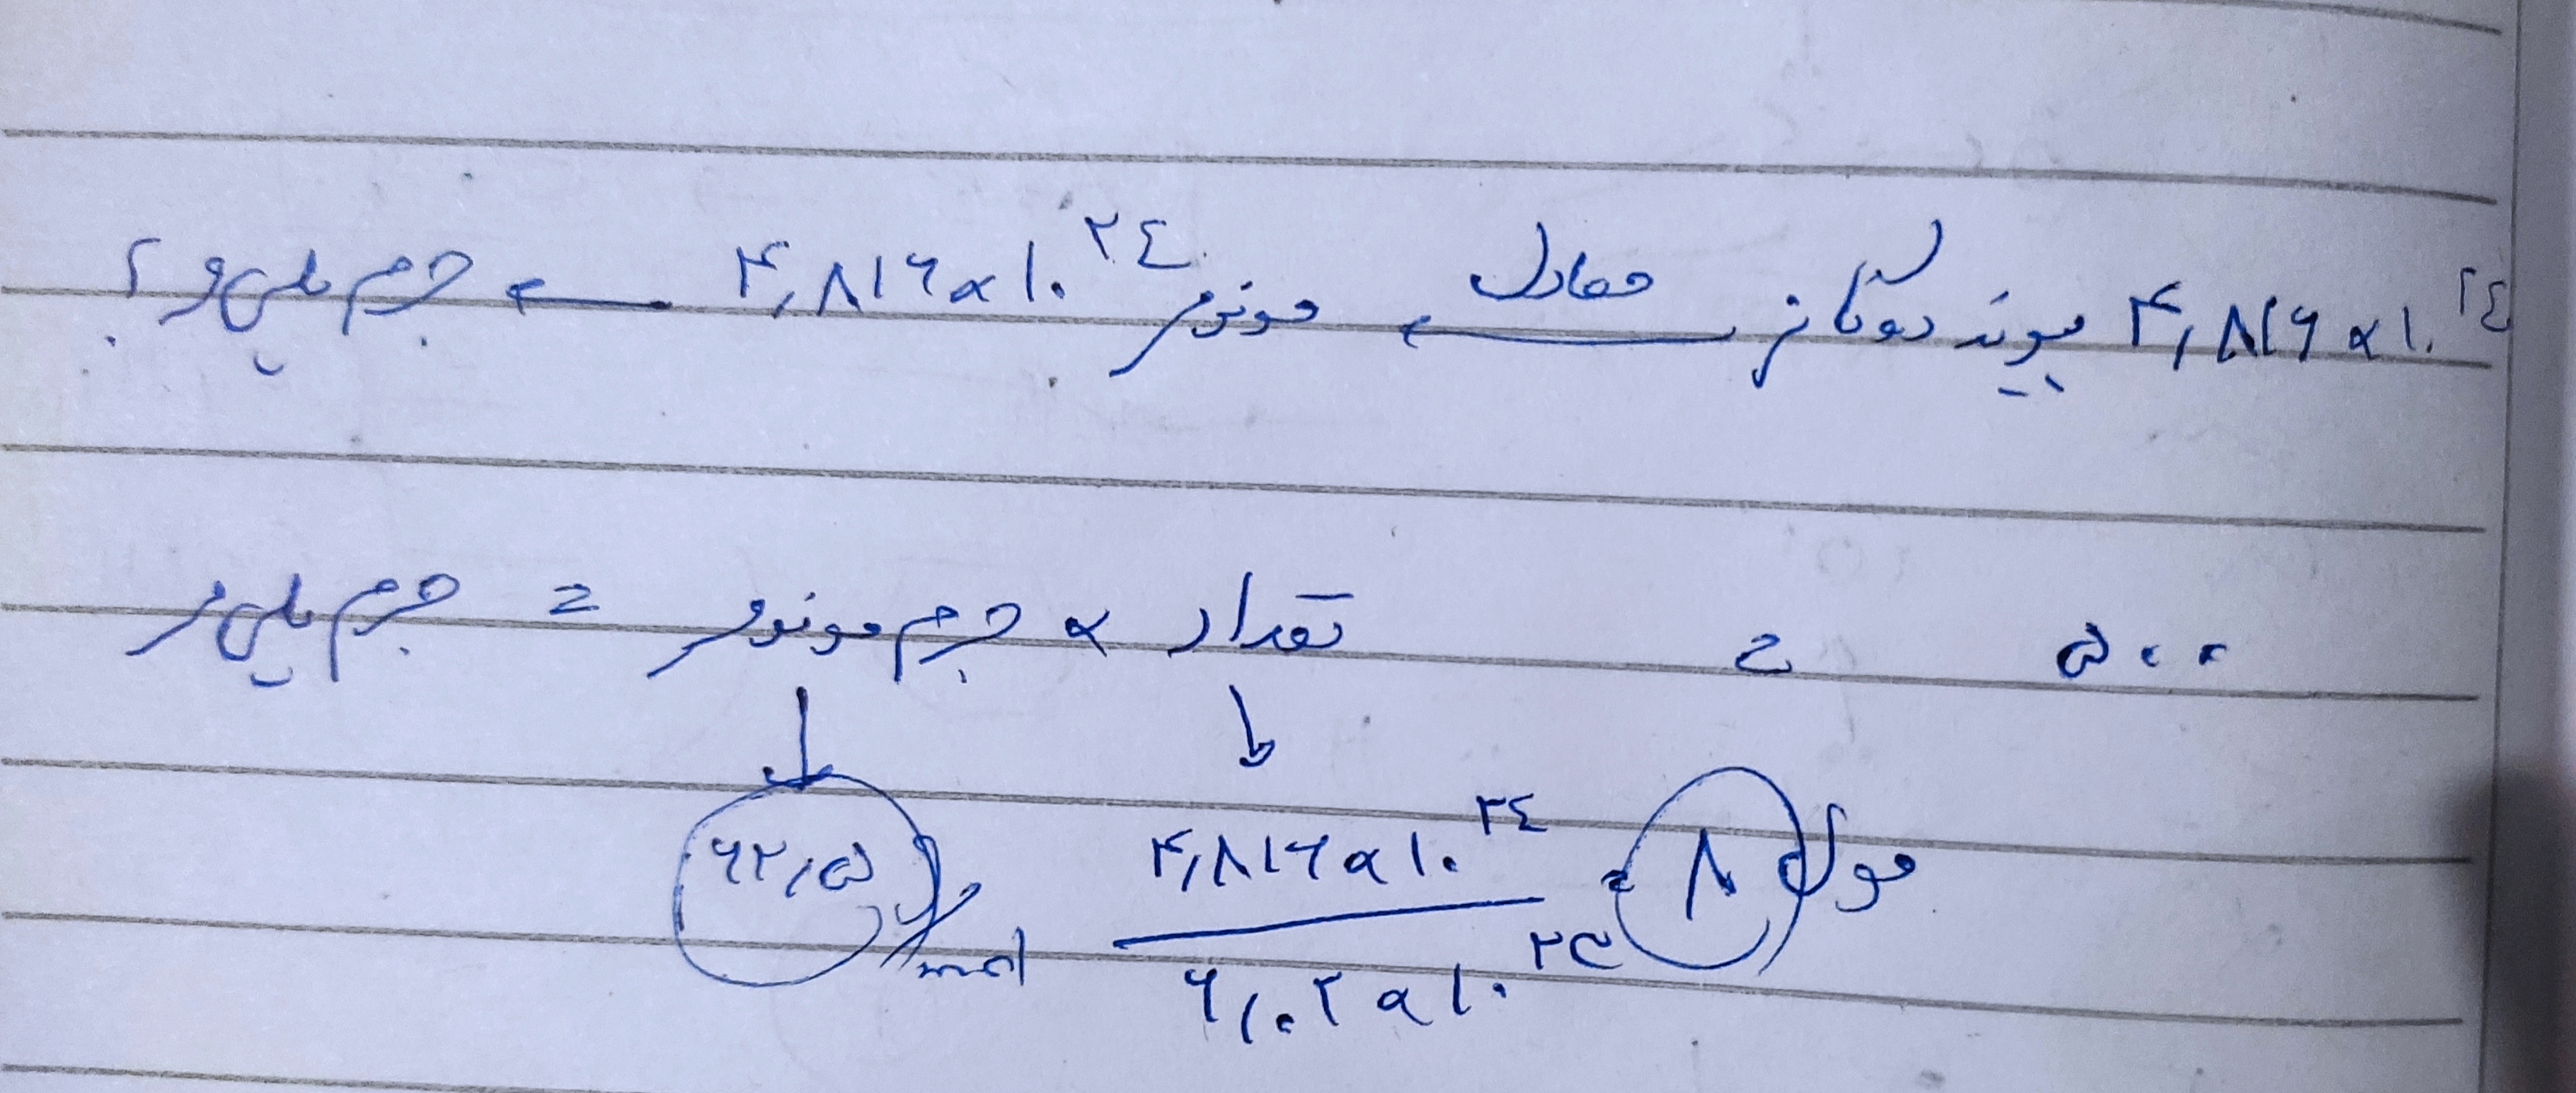 ۴,۸۱۶ × ۱۰^۲۴ پیوند دوگانه ← معادل مونومر ۴,۸۱۶ × ۱۰^۲۴ ← جرم پلیمر؟
جرم پلیمر = جرم مونومر × تعداد = ۵۰۰
۶۲,۵ g/mol ۴,۸۱۶ × ۱۰^۲۴ / ۶,۰۲ × ۱۰^۲۳ = ۸ مول